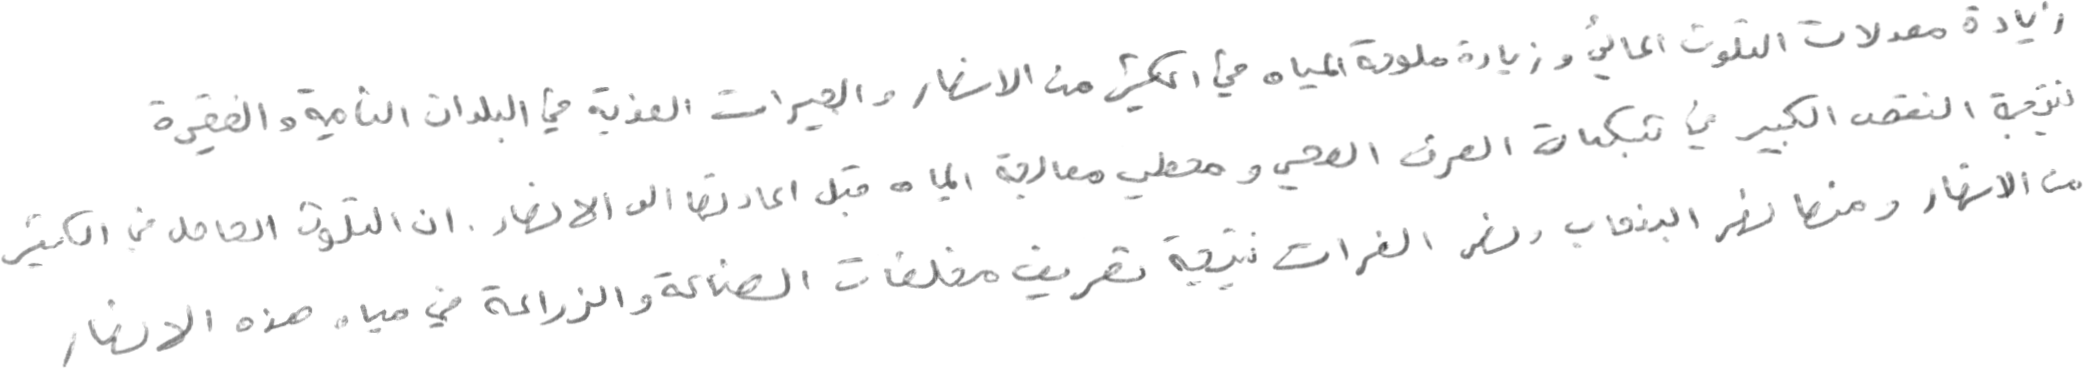 زيادة معدلات التلوث المائي و زيادة ملوحة المياه في الكثير من الانهار و البحيرات العذبة في البلدان النامية و الفقيرة
نتيجة النقص الكبير في شبكات الصرف الصحي و محطات معالجة المياه قبل اعادتها الى الانهار . ان التلوث الحاصل في الكثير
من الانهار و منها نهر البنجاب ونهر الفرات نتيجة تصريف مخلفات الصناعة و الزراعة في مياه هذه الانهار